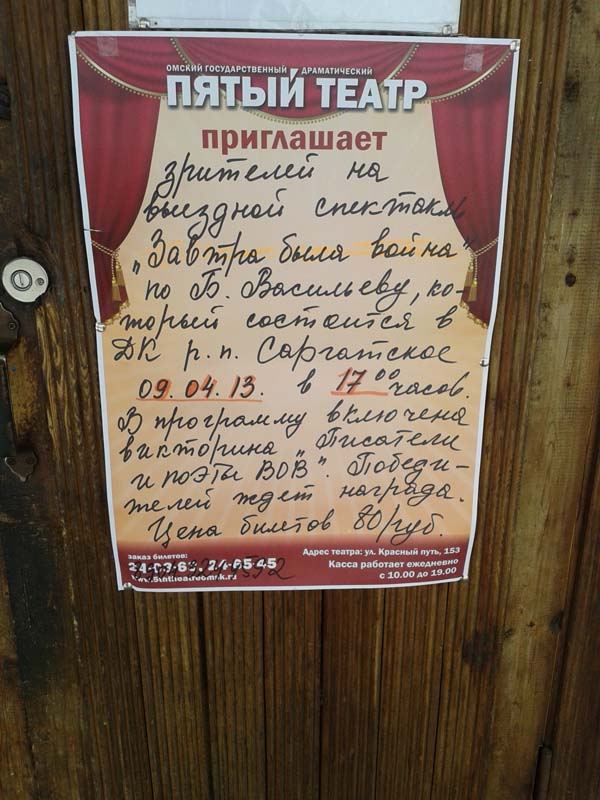 ОМСКИЙ ГОСУДАРСТВЕННЫЙ ДРАМАТИЧЕСКИЙ
ПЯТЫЙ ТЕАТР
приглашает
зрителей на
выездной спектакль
„Завтра была война"
по Б. Васильеву, ко-
торый состоится в
ДК р.п. Саргатское
09.04.13. в 17 00 часов.
В программу включена
викторина „Писатели
и поэты ВОВ". Победи-
телей ждет награда.
Цена билетов 80/руб.
заказ билетов:
24-65-45
Адрес театра: ул. Красный путь, 153
Касса работает ежедневно
с 10.00 до 19.00